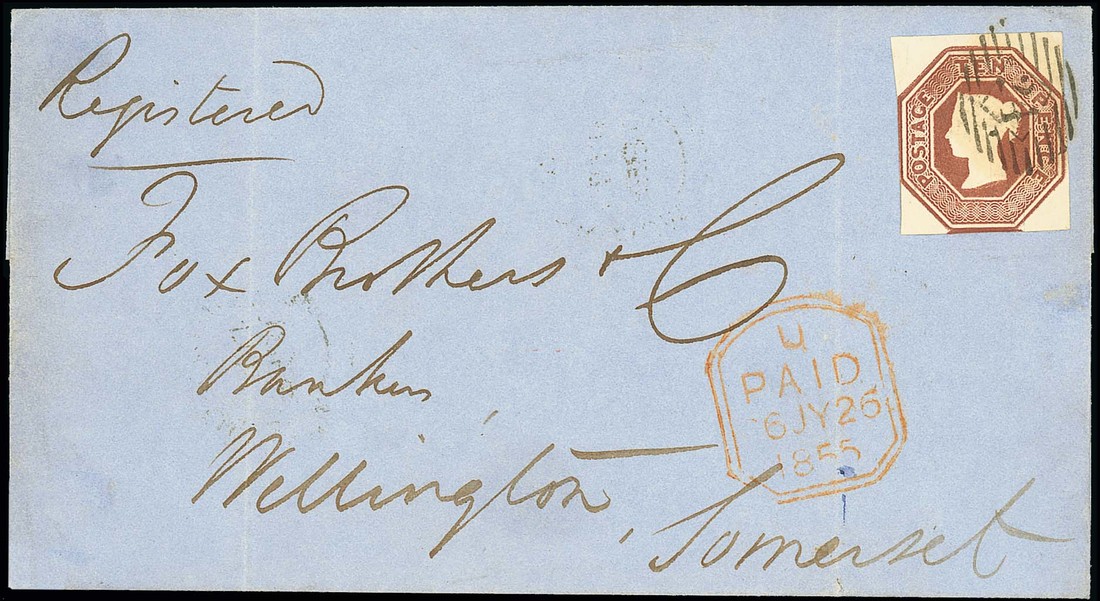 Registered
POSTAGE TEN PENCE
Fox Brothers & Co
U
PAID
26JY26
1855
Bankers,
Wellington, Somerset